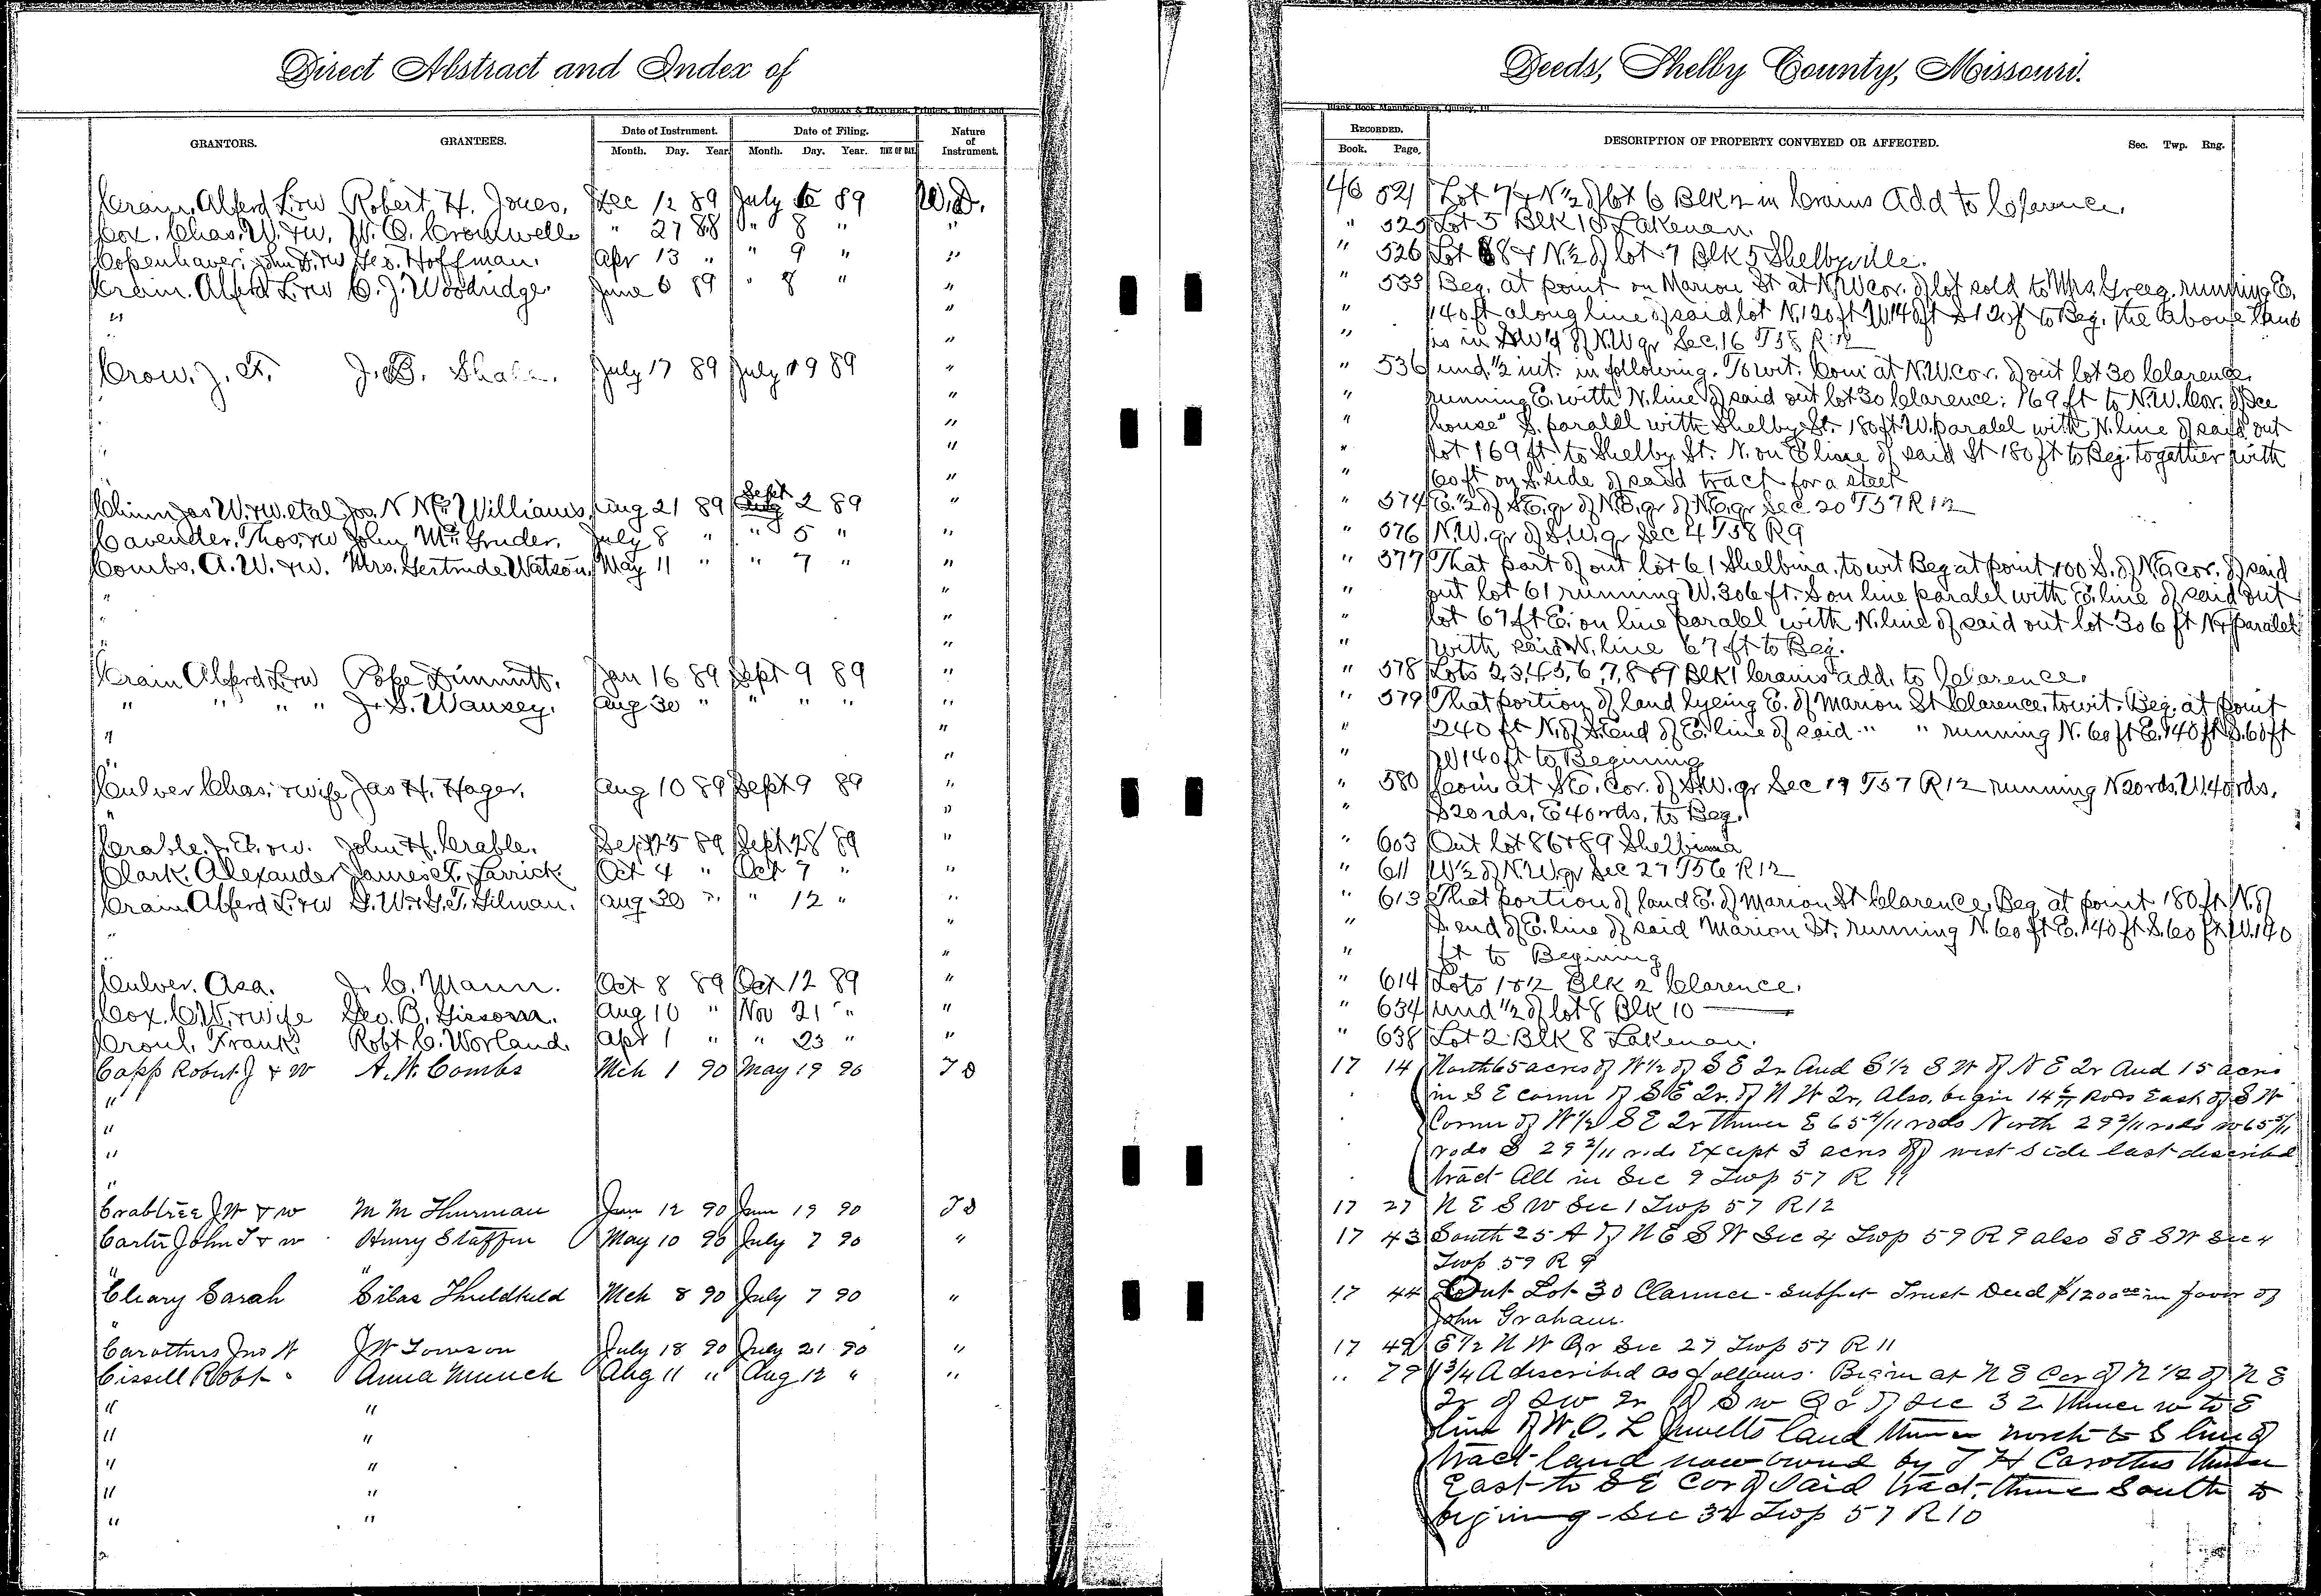 Direct Abstract and Index of
Deeds, Shelby County, Missouri.
CADOGAN & HATCHER, Printers, Binders and
Blank Book Manufacturers, Quincy, Ill.
GRANTORS. GRANTEES. Date of Instrument. Date of Filing. Nature of Instrument.
Month. Day. Year. Month. Day. Year. TIME OF DAY.
RECORDED. DESCRIPTION OF PROPERTY CONVEYED OR AFFECTED. Sec. Twp. Rng.
Book. Page.
Crain, Alferd L. & w Robert H. Jones. Dec 12 89 July 89 W.D. 46 521 Lot 7 & N½ of lot 6 Blk 2 in Crains Add to Clarence.
Cox. Chas. W. & w. W. O. Cromwell " 27 88 " 8 " " " 525 Lot 5 Blk 10 Lakenan.
Copenhaver, John D. & w Geo. Hoffman. Apr 13 " " 9 " " " 526 Lot 8 & N½ of lot 7 Blk 5 Shelbyville.
Crain. Alferd L. & w C. J. Woodridge. June 6 89 " 8 " " " 533 Beg. at point on Marion St at N.W cor. of lot sold to Mrs. Gregg. running E.
" " " 140 ft along line of said lot N. 120 ft W. 140 ft S 120 ft to Beg. the above land
" " " is in SW¼ of N.W qr Sec. 16 T58 R 12
Crow. J. A. J. B. Shale. July 17 89 July 19 89 " " 536 und. ½ int. in following. To wit. Com at N.W. cor. of out lot 30 Clarence.
" " running E. with N. line of said out lot 30 Clarence: 169 ft to N.W. Cor. of Ice
" " " house" S. paralel with Shelby St. 180 ft W. paralel with N. line of said out
" " " lot 169 ft to Shelby St. N. on E line of said St 180 ft to Beg. together with
" " 60 ft on S. side of said tract for a steet
Chinn Jas W. & w. et al Jos. N McWilliams. Aug 21 89 Sept 2 89 " " 574 E. ½ of S.E. qr of N.E. qr of N.E. qr Sec 20 T57 R12
Cavender. Thos. & w John McGruder. July 8 " " 5 " " " 576 N.W. qr of S.W. qr Sec 4 T58 R9
Combs, A. W. & w. Mrs. Gertrude Watson. May 11 " " 7 " " " 577 That part of out lot 61 Shelbina. to wit Beg at point 100 S. of N.E. cor. of said
" " " out lot 61 running W. 306 ft. S on line paralel with E. line of said out
" " " lot 67 ft E. on line paralel with N. line of said out lot 306 ft N & paralel
" " " with said N. line 67 ft to Beg.
Crain Alferd L. & w Pope Dimmitt. Jan 16 89 Sept 9 89 " " 578 Lots 2, 3, 4, 5, 6, 7, 8 & 9 Blk 1 Crains add. to Clarence.
" " " " J. S. Wansey. Aug 30 " " " " " " 579 That portion of land lyeing E. of Marion St Clarence. to wit. Beg. at point
" " " 240 ft N. of S. end of E. line of said " " running N. 60 ft E. 140 ft S. 60 ft
" " " W 140 ft to Begining
Culver Chas. & wife Jas H. Hager. Aug 10 89 Sept 9 89 " " 580 Com at S.E. Cor. of S.W. qr Sec 19 T57 R12 running N 20 rds. W. 40 rds.
" " " S 20 rds. E 40 rds. to Beg.
Crable J. E. & w. John H. Crable. Sept 25 89 Sept 28 89 " " 603 Out lot 86 & 89 Shelbina
Clark. Alexander James T. Larrick Oct 4 " Oct 7 " " " 611 W½ of N.W. qr Sec 27 T56 R12
Crain Alferd L. & w S. W. & G. T. Gilman. Aug 30 " " 12 " " " 613 That portion of land E. of Marion St Clarence. Beg. at point 180 ft N. of
" " " S. end of E. line of said Marion St. running N. 60 ft E. 140 ft S. 60 ft W. 140
" " ft to Begining
Culver. Asa. J. C. Mann. Oct 8 89 Oct 12 89 " " 614 Lots 1 & 2 Blk 2 Clarence.
Cox. C. W. & wife Geo. B. Gissom. Aug 10 " Nov 21 " " " 634 und ½ of lot 8 Blk 10
Croul. Frank Robt C. Worland. Apr 1 " " 23 " " " 638 Lot 2 Blk 8 Lakenan.
Capp Robert J & w A. W. Combs Mch 1 90 May 19 90 T D 17 14 North 65 acres of W ½ of S E Qr And S ½ S W of N E Qr And 15 acres
" in S E corner of S E Qr. of N W Qr, Also, begin 14 Rods East of S W
" Corner of W ½ S E Qr Thence E 65 4/11 rods North 29 2/11 rods W 65 5/11
" rods S 29 2/11 rods Except 3 acres off west side last described
" tract All in Sec 9 Twp 57 R 11
Crabtree J W & w M M Thurman Jun 12 90 Jun 19 90 T D 17 27 N E S W Sec 1 Twp 57 R 12
Carter John T & w Henry Staffin May 10 90 July 7 90 " 17 43 South 25 A of N E S W Sec 4 Twp 59 R 9 also S E S W Sec 4
" " Twp 59 R 9
Cleary Sarah Silas Threldkeld Mch 8 90 July 7 90 " 17 44 Out Lot 30 Clarence - subject Trust Deed $1200 00 in favor of
" John Graham.
Carothers Jno W J W Towson July 18 90 July 21 90 " 17 49 E ½ N W Qr Sec 27 Twp 57 R 11
Cissell Robt Anna Munch Aug 11 " Aug 12 " " " 79 1 3/4 A described as follows. Begin at N E Cor of N ½ of N E
" " Qr of S W Qr of S W Qr of Sec 32 thence W to E
" " line of W. O. L Jewetts land thence north to S line of
" " tract land now owned by T H Carothers thence
" " East to S E Cor of said tract - thence South to
" " begining - Sec 32 Twp 57 R 10